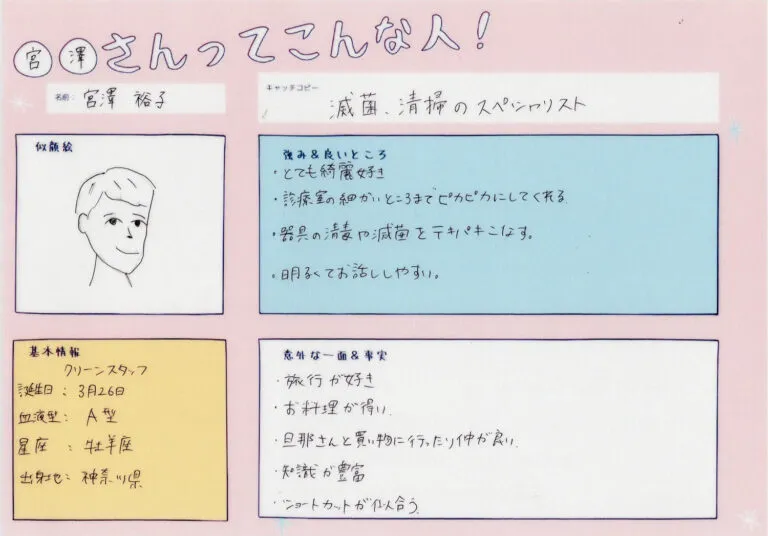 宮澤さんってこんな人!
名前: 宮澤 裕子
キャッチコピー
滅菌、清掃のスペシャリスト
似顔絵
強み&良いところ
・とても綺麗好き
・診療室の細かいところまでピカピカにしてくれる
・器具の消毒や滅菌をテキパキこなす。
・明るくてお話ししやすい。
基本情報
クリーンスタッフ
誕生日: 3月26日
血液型: A型
星座 : 牡羊座
出身地: 神奈川県
意外な一面&事実
・旅行が好き
・お料理が得い、
・旦那さんと買い物に行ったり仲が良い、
・知識が豊富
・ショートカットが似合う、